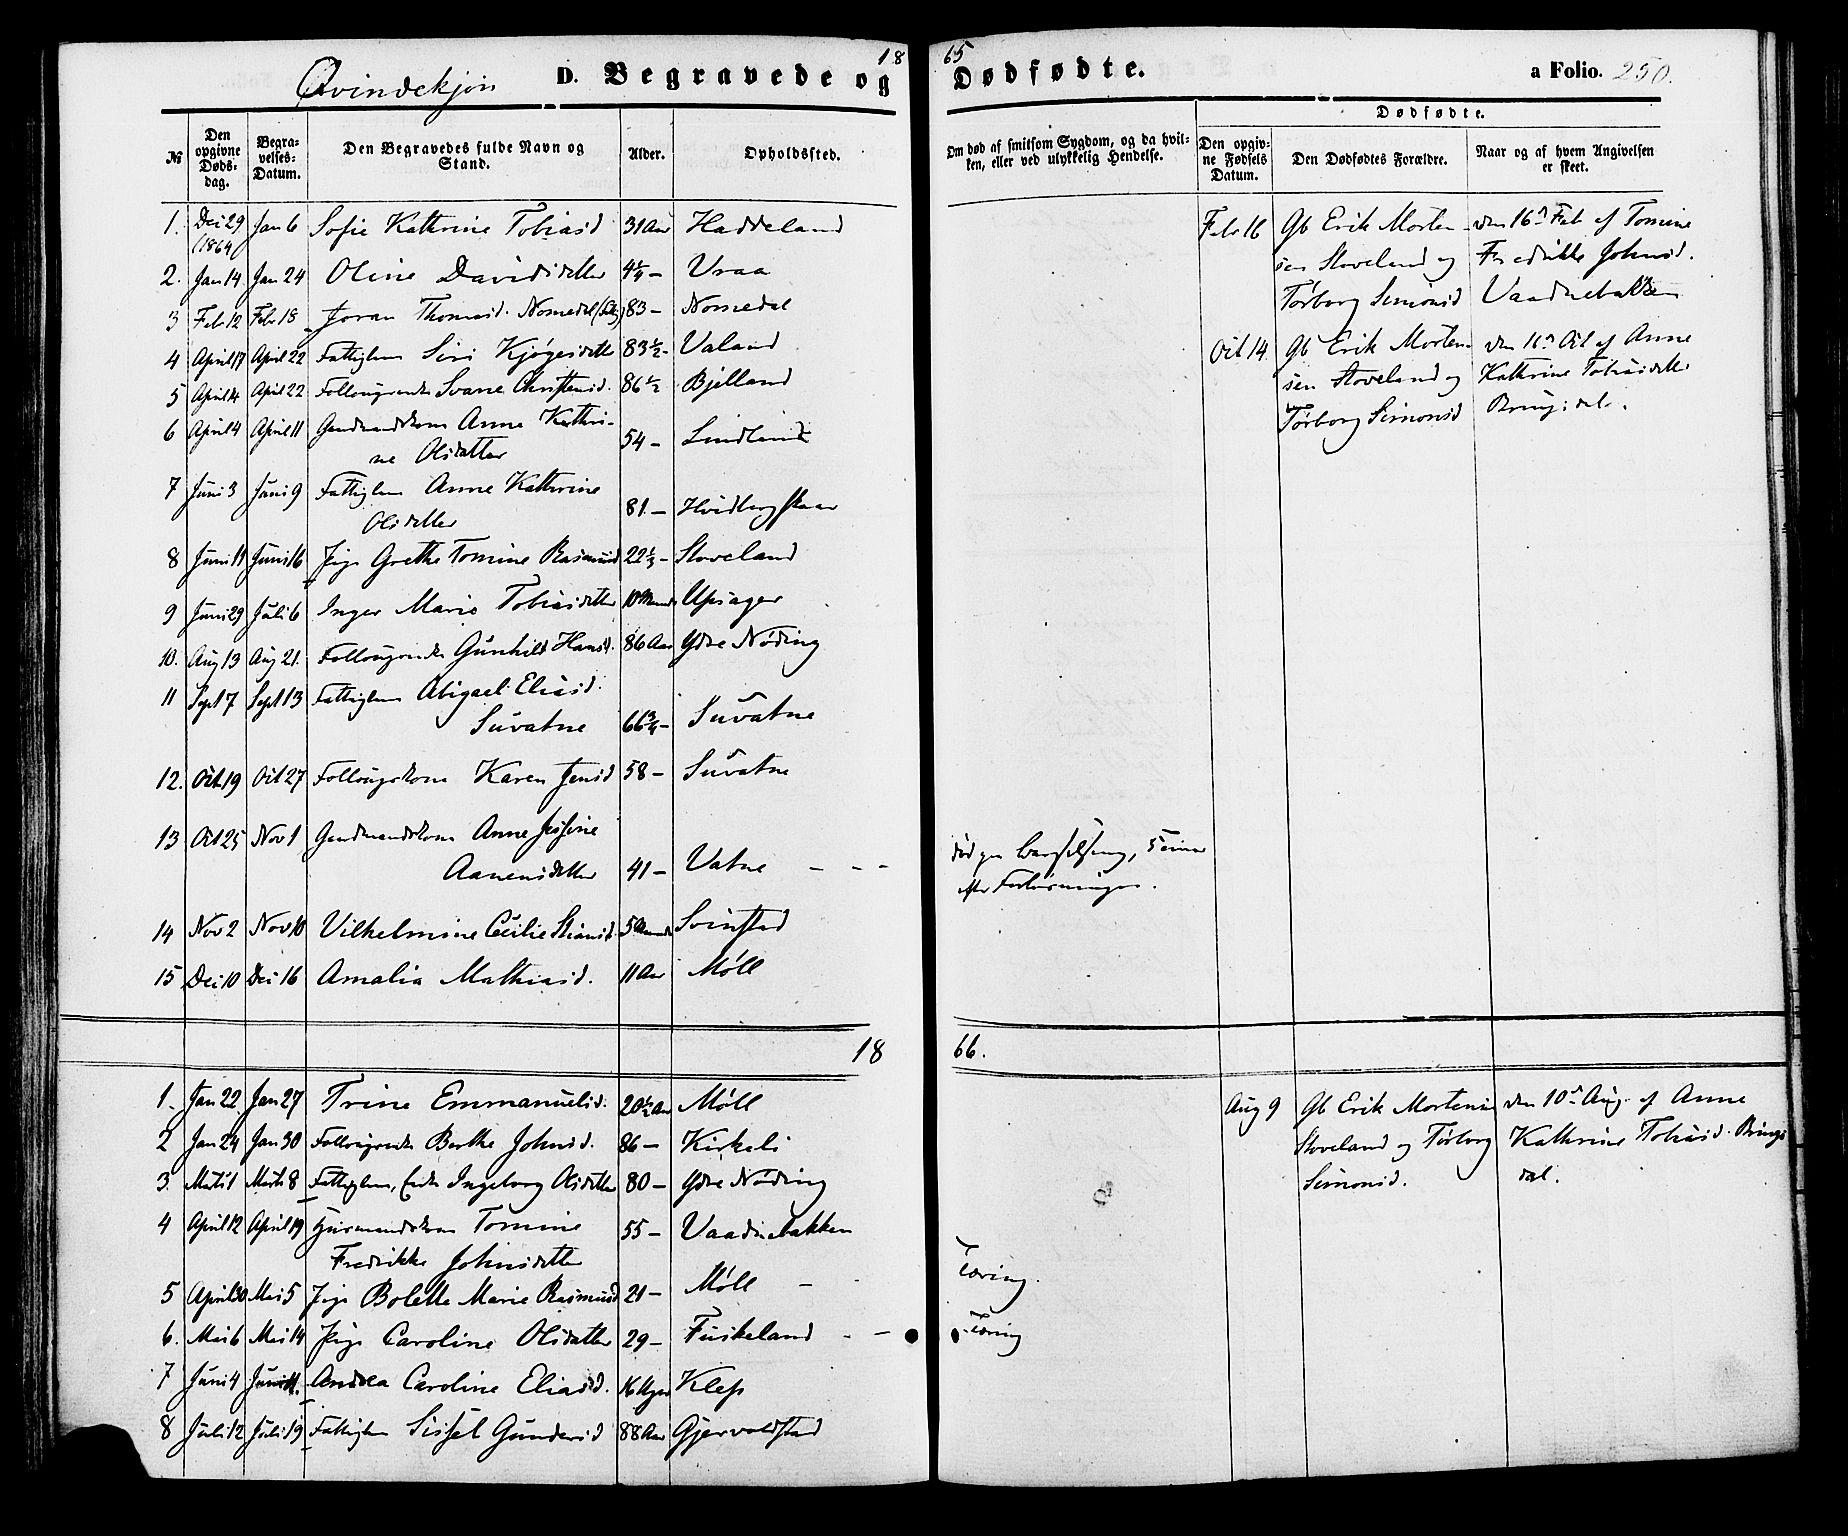 1865
Qvindekjøn D. Begravede og Dødfødte. a Folio. 250.
№ | Den opgivne Døds-dag. | Begra-velses-Datum. | Den Begravedes fulde Navn og Stand. | Alder. | Opholdssted. | Om død af smitsom Sygdom, og da hvil-ken, eller ved ulykkelig Hendelse. | Dødfødte. | Den opgiv-ne Fødsels Datum. | Den Dødfødtes Forældre. | Naar og af hvem Angivelsen er skeet.
1. Dec 29 (1864) Jan 6 Sofie Kathrine Tobiasd 31 Aar Haddeland
2. Jan 14 Jan 24 Oline Davidsdatter 4 1/4 – Vraa
3 Feb 12 Feb 18 Joran Thomasd. Nomedal 83 – Nomedal
4 April 17 April 22 Fattiglem Siri Kjøgesdatter 83 1/2 – Valand
5 April 14 April 22 Follougsenke Svane Christensd. 86 1/2 Bjelland
6 April 4 April 11 Gaardmandskone Anne Kathri-
ne Olsdatter 54 – Lindland
7 Juni 3 Juni 9 Fattiglem Anne Kathrine
Olsdatter 81 – Hvidbergskaar
8 Juni 11 Juni 16 Pige Grethe Tomine Rasmusd 22 1/3 – Stoveland
9 Juni 29 Juli 6 Inger Marie Tobiasdatter 10 Maaned Upsager
10. Aug 13 Aug 21. Follougsenke Gunhild Hansd. 86 Aar Ydre Nøding
11 Sept 7 Sept 13 Fattiglem Abigael Eliasd.
Suvatne 66 3/4 – Suvatne
12. Oct 19 Oct 27 Follougskone Karen Jensd 58 – Suvatne
13 Oct 25 Nov 1 Gaardmandskone Anne
Aanensdatter 41 – Vatne – – – død paa Barselseng, 5 Timer
efter Forløsningen.
14 Nov 2 Nov 10 Vilhelmine Cecilie 5 Maaned Svinstad
15 Dec 10 Dec 16 Amalia Mathiasd. 11 Aar Møll
Feb 16 Gb Erik Morten-
sen Stoveland og
Tørborg Simonsd
den 16de Feb af Tomine
Fredrikke Johnsd.
Vaadnebakken
Oct 14 Gb Erik Morten-
sen Stoveland og
Tørborg Simonsd
den 16de Oct af Anne
Kathrine Tobiasdatter
Bringsdal.
1866.
1. Jan 22 Jan 27 Trine Emmanuelsd. 20 1/2 Aar Møll
2 Jan 24 Jan 30 Follougsenke Berthe Johnsd. 86 – Kirkeli
3. Marts 1 Marts 8 Fattiglem, Enke Ingeborg Olsdatter 80 – Ydre Nøding
4 April 12 April 19 Husmandskone Tomine
Fredrikke Johnsdatter 55 – Vaadnebakken
5 April 30 Mai 5 Pige Bolette Marie Rasmusd 21 – Møll – Tæring.
6. Mai 6 Mai 14 Pige Caroline Olsdatter 29 – Fuskeland – – Tæring
7 Juni 4 Juni 11. Andrea Caroline Eliasd. 16 Uger Klep
8 Juli 12 Juli 19 Fattiglem Sissel Gundersd 88 Aar Gjervoldstad
Aug 9 Gb Erik Mortens
Stoveland og Tørborg
Simonsd.
den 10de Aug. af Anne
Kathrine Tobiasd. Brings
dal.